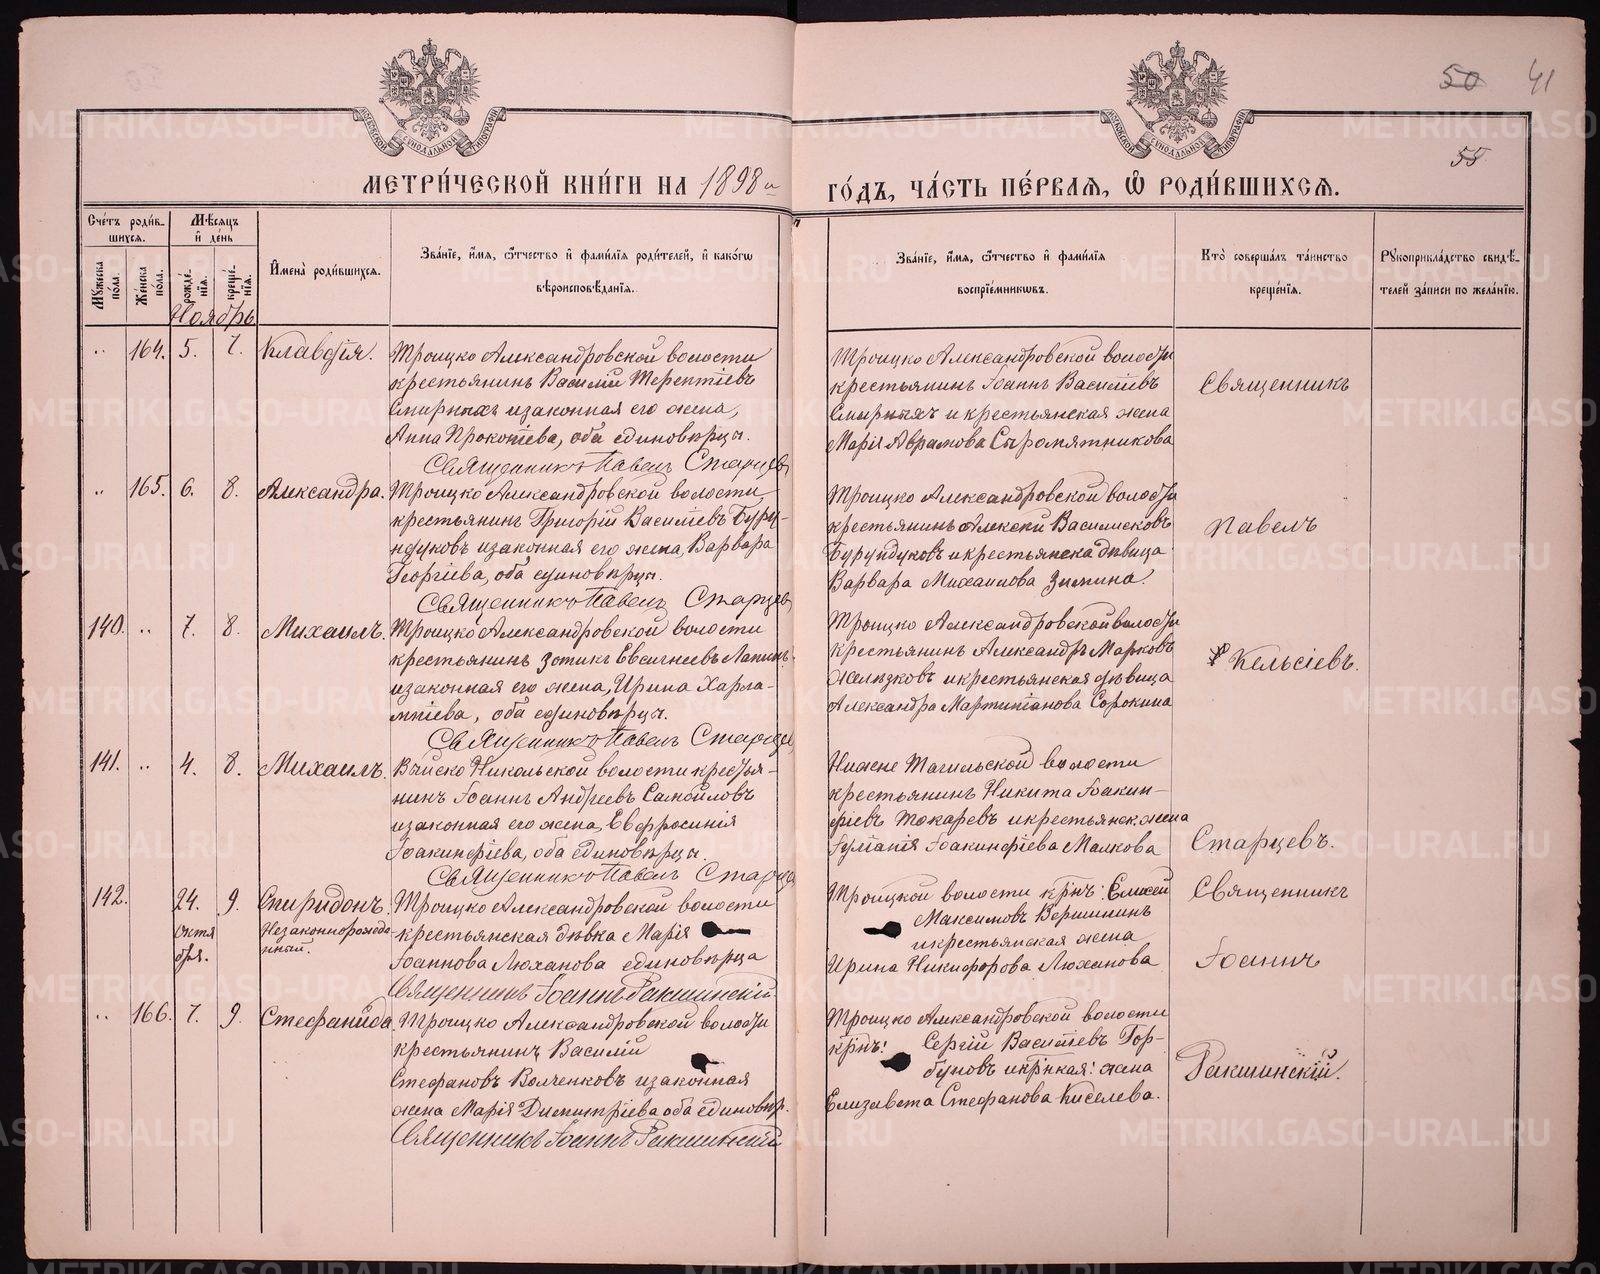 50 41
55
МОСКОВСКОЙ СѴНОДАЛЬНОЙ ТИПОГРАФІИ
МОСКОВСКОЙ СѴНОДАЛЬНОЙ ТИПОГРАФІИ
МЕТРИ́ЧЕСКОЙ КНИ́ГИ НА 1898й
ГО́ДЪ, ЧА́СТЬ ПЕ́РВАѦ, Ѽ РОДИ́ВШИХСѦ.
Сче́тъ роди́в-
шихсѧ.
Мꙋ́жеска по́ла.
Же́нска по́ла.
Мѣ́сѧцъ
и҆ де́нь
рожде́нїѧ.
креще́нїѧ.
И҆мена̀ роди́вшихсѧ.
Зва́нїе, и҆́мѧ, ѻ҆́тчество и҆ фами́лїѧ роди́телей, и҆ како́гѡ
вѣроисповѣ́данїѧ.
Зва́нїе, и҆́мѧ, ѻ҆́тчество и҆ фами́лїѧ
воспрїе́мникѡвъ.
Кто̀ соверша́лъ та́инство
креще́нїѧ.
Рꙋкоприкла́дство свидѣ́-
телей за́писи по жела́нїю.
Ноябрь
„ 164. 5. 7. Клавдія.
Троицко Александровской волости
крестьянинъ Василій Терентіевъ
Смирныхъ и законная его жена,
Анна Прокопіева, оба единовѣрцы.
Священникъ Павелъ Старцевъ
Троицко Александровской волости
крестьянинъ Іоаннъ Василіевъ
Смирныхъ и крестьянская жена
Марія Аврамова Сыромятникова
Священникъ
„ 165. 6. 8. Александра.
Троицко Александровской волости
крестьянинъ Григорій Василіевъ Буру-
ндуковъ и законная его жена, Варвара
Георгіева, оба единовѣрцы.
Священникъ Павелъ Старцевъ
Троицко Александровской волости
крестьянинъ Алексѣй
Бурундуковъ и крестьянска дѣвица
Варвара Михаилова Зимина.
Павелъ
140. „ 7. 8. Михаилъ.
Троицко Александровской волости
крестьянинъ Зотикъ Евсигнеевъ Лапинъ
и законная его жена, Ирина Харла-
мпіева, оба единовѣрцы.
Священникъ Павелъ Старцевъ
Троицко Александровской волости
крестьянинъ Александръ Марковъ
Желѣзковъ и крестьянская дѣвица
Александра Мартиніанова Сорокина
Кельсіевъ.
141. „ 4. 8. Михаилъ.
Выйско Никольской волости крестья-
нинъ Іоаннъ Андреевъ Самойловъ
и законная его жена, Евфросинія
Іоакинфіева, оба единовѣрцы.
Священникъ Павелъ Старцев
Нижне Тагильской волости
крестьянинъ Никита Іоакин-
фіевъ Токаревъ и крестьянск. жена
Іуліанія Іоакинфіева Малкова
Старцевъ.
142. 24. октября. 9. Спиридонъ.
Незаконнорожде-
нный.
Троицко Александровской волости
крестьянская дѣвка Марія
Іоаннова Люханова единовѣрца
Священникъ Іоаннъ Ракшинскій
Троицкой волости крнъ: Елисей
Максимовъ Вершининъ
и крестьянская жена
Ирина Никифорова Люханова
Священникъ
Іоаннъ
„ 166. 7. 9. Стефанида
Троицко Александровской волости
крестьянинъ Василій
Стефановъ Волченковъ и законная
жена Марія Димитріева оба единовѣр.
Священникъ Іоаннъ Ракшинскій
Троицко Александровской волости
крнъ: Сергій Василіевъ Гор-
буновъ и крнкая: жена
Елизавета Стефанова Киселева.
Ракшинскій.
METRIKI.GASO-URAL.RU